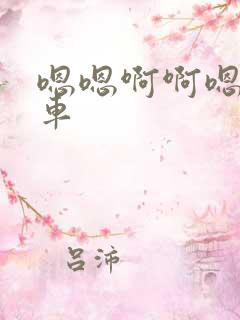 嗯嗯啊啊嗯
車
吕沛